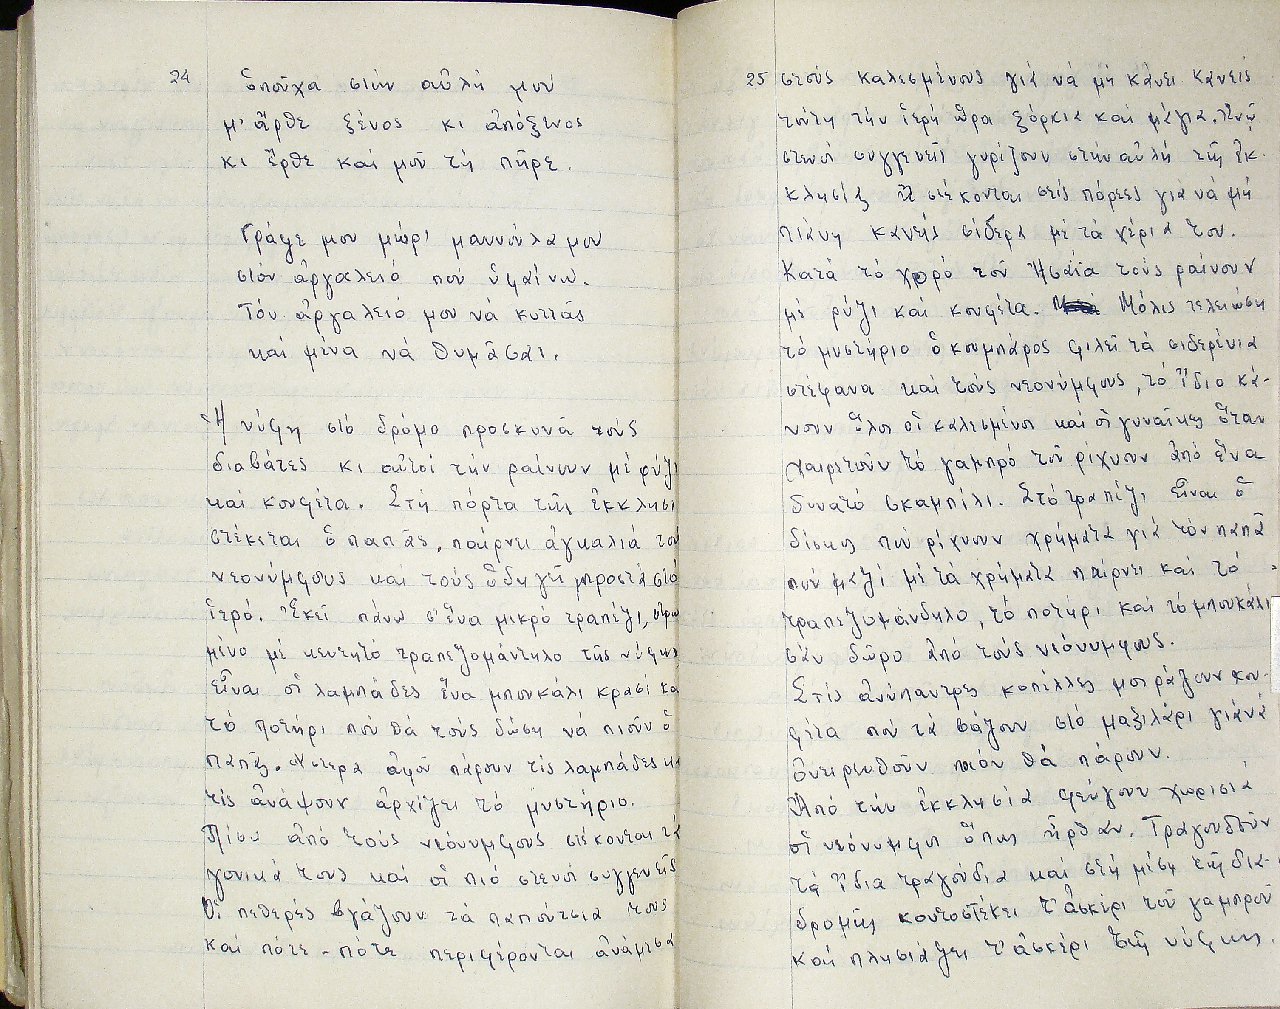 24
ὁποῦχα στὴν αὐλή μου
μ' ἄρθε ξένος κι ἀπόξενος
κι ἦρθε καί μοῦ τή πῆρε.
Γράψε μου μώρ' μαννούλα μου
στόν ἀργαλειό που ὑφαίνω.
Τόν ἀργαλειό μου νά κυττᾶς
καί μένα νά θυμᾶσαι.
Ἡ νύφη στό δρόμο προσκυνᾶ τούς
διαβάτες κι αὐτοί τήν ραίνουν μέ ρύζι
καί κουφέτα. Στή πόρτα τῆς ἐκκλησι
στέκεται ὁ παπᾶς, παίρνει ἀγκαλιά τού
νεονύμφους καί τούς ὁδηγεῖ μπροστά στό
ἱερό. Ἐκεῖ πάνω σ' ἕνα μικρό τραπέζι,
μένο μέ κεντητό τραπεζομάντηλο τῆς νύφης
εἶναι οἱ λαμπάδες ἕνα μπουκάλι κρασί κα
τό ποτήρι πού θά τούς δώση νά πιοῦν ὁ
παπᾶς. Ὕστερα ἀφοῦ πάρουν τίς λαμπάδες κα
τίς ἀνάψουν ἀρχίζει τό μυστήριο.
Πίσω ἀπό τούς νεόνυμφους στέκονται τά
γονικά τους καί οἱ πιό στενοί συγγενεῖς
Οἱ πεθερές βγάζουν τά παπούτσια τους
καί πότε-πότε περιφέρονται ἀνάμεσα
25 στούς καλεσμένους γιά νά μή κάνει κανείς
τούτη τήν ἱερή ὥρα ξόρκια καί μάγια.
στενοί συγγενεῖς γυρίζουν στήν αὐλή τῆς ἐκ-
κλησίας ἤ στέκονται στίς πόρτες γιά νά μή
πιάνη κανείς σίδερα μέ τά χέρια του.
Κατά τό χορό τοῦ Ἠσαΐα τούς ραίνουν
μέ ρύζι καί κουφέτα. Μόλις τελειώση
τό μυστήριο ὁ κουμπάρος φιλεῖ τά σιδερένια
στέφανα καί τούς νεονύμφους, τό ἴδιο κά-
νουν ὅλοι οἱ καλεσμένοι καί οἱ γυναῖκες ὅταν
χαιρετοῦν τό γαμπρό τοῦ ρίχνουν ἀπό ἕνα
δυνατό σκαμπίλι. Στό τραπέζι εἶναι ὁ
δίσκος πού ρίχνουν χρήματα γιά τόν παπᾶ
πού μαζί μέ τά χρήματα παίρνει καί τό
τραπεζομάνδηλο, τό ποτήρι καί τό μπουκάλι
σάν δῶρο ἀπό τούς νεόνυμφους.
Στίς ἀνύπαντρες κοπέλλες μοιράζουν κου-
φέτα πού τά βάζουν στό μαξιλάρι γιά νά
ὀνειρευθοῦν ποιόν θά πάρουν.
Ἀπό τήν ἐκκλησία φεύγουν χωριστά
οἱ νεόνυμφοι ὅπως ἦρθαν. Τραγουδοῦν
τά ἴδια τραγούδια καί στή μέση τῆς δια-
δρομῆς κοντοστέκει τ' ἀσκέρι τοῦ γαμπροῦ
καί πλησιάζει τ' ἀσκέρι τῆς νύφης.